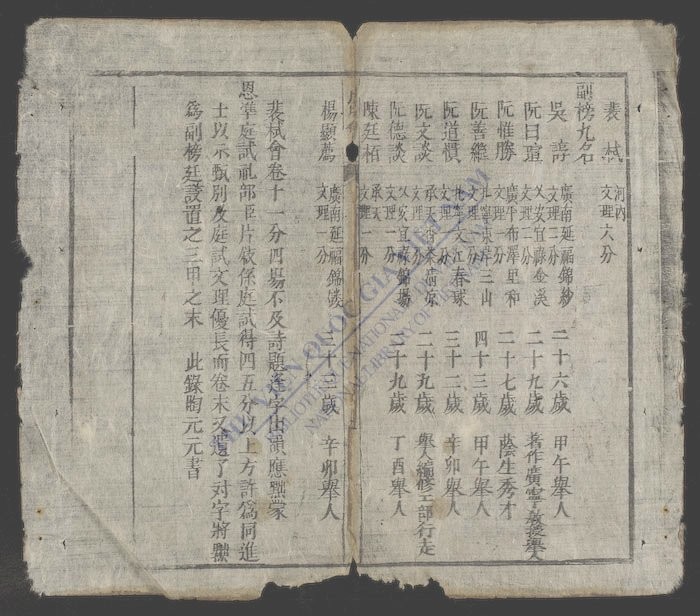 裴栻 河内 文理六分
副榜九名
吳諄 廣南延福錦紗 文理三分 二十六歲 甲午舉人
阮曰瑄 乂安宜祿金溪 文理三分 二十九歲 著作廣寧教授舉人
阮惟勝 廣平布澤里和 文理二分 二十七歲 蔭生秀才
阮善繼 北寧東岸三山 文理二分 四十三歲 甲午舉人
阮道慣 北寧文江春球 文理 分 三十二歲 辛卯舉人
阮文談 承天香茶 文理 分 二十九歲 舉人編修工部行走
阮德談 乂安宜祿錦場 文理一分 二十九歲 丁酉舉人
陳廷栢 承天 文理一分
楊顯廌 廣南延福錦 文理一分 三十三歲 辛卯舉人
裴栻會卷十一分四場不及詩題逐字出韻應黜蒙
恩準庭試礼部臣片啟係庭試得四五分以上方許爲同進
士以示甄別及庭試文理優長而卷末又遺了对字將黜
爲副榜廷議置之三甲之末 此錄陶元元書
THƯ VIỆN QUỐC GIA VIỆT NAM
NATIONAL LIBRARY OF